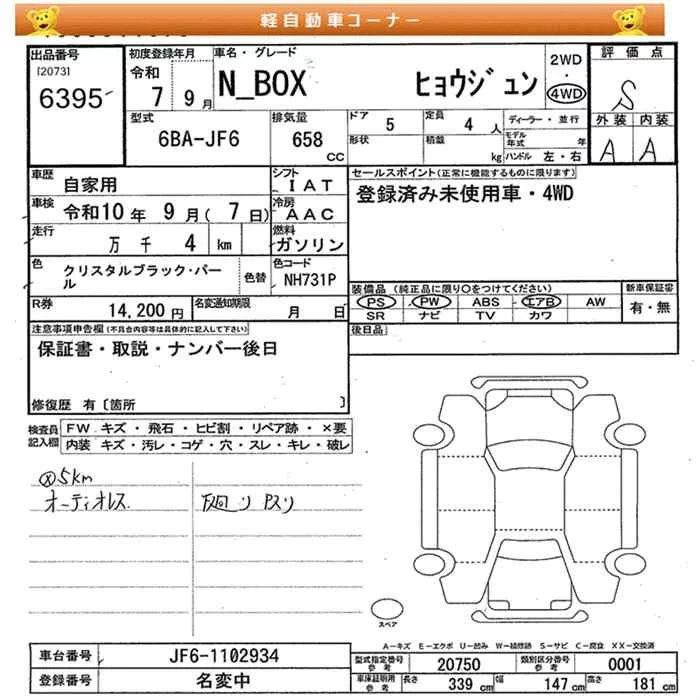 軽自動車コーナー
出品番号 初度登録年月 車名・グレード 2WD・4WD 評価点
[2073] 6395 令和 7 9月 N_BOX ヒョウジュン S
型式 排気量 ドア 5 定員 4 人 ディーラー・並行 外装 内装
6BA-JF6 658 CC 形状 積載 kg モデル年式 年 ハンドル 左・右 A A
車歴 自家用 シフト IAT セールスポイント(正常に機能するものに限ります)
車検 令和10年 9月( 7日) 冷房 AAC 登録済み未使用車・4WD
走行 万 千 4 km 燃料 ガソリン
色 クリスタルブラック・パール 色替 色コード NH731P
装備品 (純正品に限り〇をつけてください) 新車保証書
R券 14,200円 名変通知期限 月 日 PS PW ABS エアB AW 有・無
SR ナビ TV カワ
注意事項申告欄(不具合内容等は具体的に記入して下さい) 後日品
保証書・取説・ナンバー後日
修復歴 有〔箇所 〕
検査員記入欄 FW キズ・飛石・ヒビ割・リペア跡・×要
内装 キズ・汚レ・コゲ・穴・スレ・キレ・破レ
5km
オーディオレス
スペア
A－キズ E－エクボ U－凹み W－補修跡 S－サビ C－腐食 XX－交換済
車台番号 JF6-1102934 型式指定番号 参考 20750 類別区分番号 参考 0001
登録番号 名変中 車庫証明用 参考 長さ 339 cm 幅 147 cm 高さ 181 cm